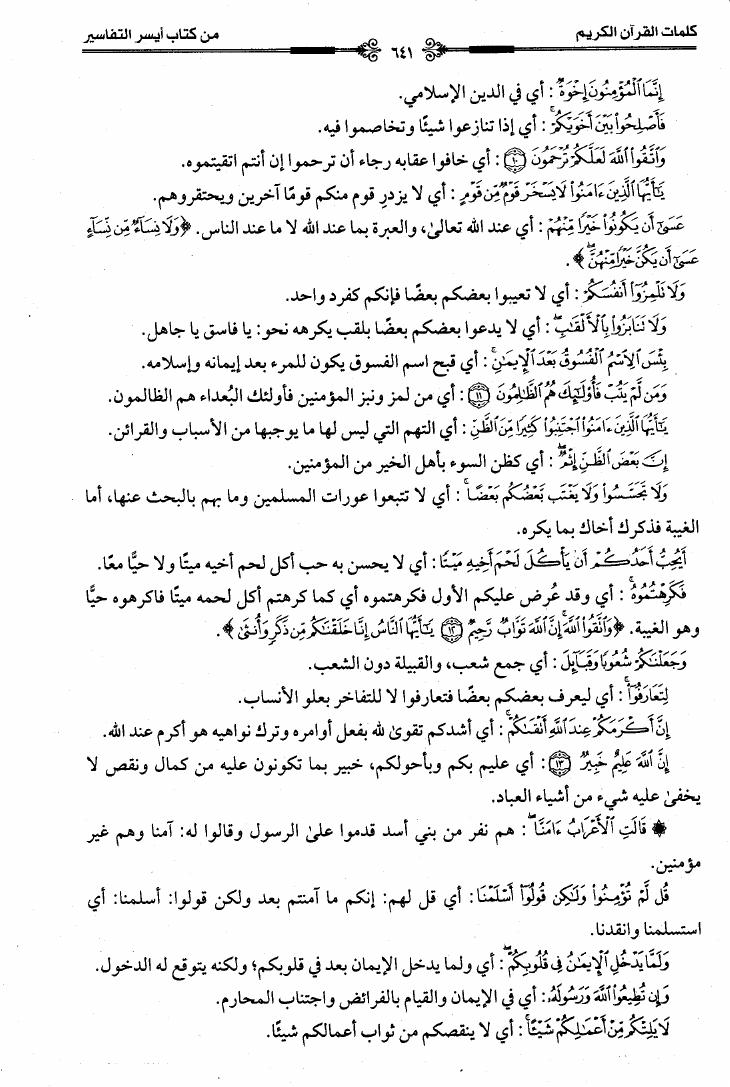 كلمات القرآن الكريم
٦٤١
من كتاب أيسر التفاسير
إِنَّمَا ٱلْمُؤْمِنُونَ إِخْوَةٌ: أي في الدين الإسلامي.
فَأَصْلِحُوا۟ بَيْنَ أَخَوَيْكُمْ: أي إذا تنازعوا شيئًا وتخاصموا فيه.
وَٱتَّقُوا۟ ٱللَّهَ لَعَلَّكُمْ تُرْحَمُونَ ۝١٠: أي خافوا عقابه رجاء أن ترحموا إن أنتم اتقيتموه.
يَٰٓأَيُّهَا ٱلَّذِينَ ءَامَنُوا۟ لَا يَسْخَرْ قَوْمٌ مِّن قَوْمٍ: أي لا يزدرِ قوم منكم قومًا آخرين ويحتقروهم.
عَسَىٰٓ أَن يَكُونُوا۟ خَيْرًا مِّنْهُمْ: أي عند الله تعالىٰ، والعبرة بما عند الله لا ما عند الناس. ﴿وَلَا نِسَآءٌ مِّن نِّسَآءٍ
عَسَىٰٓ أَن يَكُنَّ خَيْرًا مِّنْهُنَّ﴾.
وَلَا تَلْمِزُوٓا۟ أَنفُسَكُمْ: أي لا تعيبوا بعضكم بعضًا فإنكم كفرد واحد.
وَلَا تَنَابَزُوا۟ بِٱلْأَلْقَٰبِ: أي لا يدعوا بعضكم بعضًا بلقب يكرهه نحو: يا فاسق يا جاهل.
بِئْسَ ٱلِٱسْمُ ٱلْفُسُوقُ بَعْدَ ٱلْإِيمَٰنِ: أي قبح اسم الفسوق يكون للمرء بعد إيمانه وإسلامه.
وَمَن لَّمْ يَتُبْ فَأُو۟لَٰٓئِكَ هُمُ ٱلظَّٰلِمُونَ ۝١١: أي من لمز ونبز المؤمنين فأولئك البُعداء هم الظالمون.
يَٰٓأَيُّهَا ٱلَّذِينَ ءَامَنُوا۟ ٱجْتَنِبُوا۟ كَثِيرًا مِّنَ ٱلظَّنِّ: أي التهم التي ليس لها ما يوجبها من الأسباب والقرائن.
إِنَّ بَعْضَ ٱلظَّنِّ إِثْمٌ: أي كظن السوء بأهل الخير من المؤمنين.
وَلَا تَجَسَّسُوا۟ وَلَا يَغْتَب بَّعْضُكُم بَعْضًا: أي لا تتبعوا عورات المسلمين وما بهم بالبحث عنها، أما
الغيبة فذكرك أخاك بما يكره.
أَيُحِبُّ أَحَدُكُمْ أَن يَأْكُلَ لَحْمَ أَخِيهِ مَيْتًا: أي لا يحسن به حب أكل لحم أخيه ميتًا ولا حيًّا معًا.
فَكَرِهْتُمُوهُ: أي وقد عُرض عليكم الأول فكرهتموه أي كما كرهتم أكل لحمه ميتًا فاكرهوه حيًّا
وهو الغيبة. ﴿وَٱتَّقُوا۟ ٱللَّهَ إِنَّ ٱللَّهَ تَوَّابٌ رَّحِيمٌ ۝١٢ يَٰٓأَيُّهَا ٱلنَّاسُ إِنَّا خَلَقْنَٰكُم مِّن ذَكَرٍ وَأُنثَىٰ﴾.
وَجَعَلْنَٰكُمْ شُعُوبًا وَقَبَآئِلَ: أي جمع شعب، والقبيلة دون الشعب.
لِتَعَارَفُوٓا۟: أي ليعرف بعضكم بعضًا فتعارفوا لا للتفاخر بعلو الأنساب.
إِنَّ أَكْرَمَكُمْ عِندَ ٱللَّهِ أَتْقَىٰكُمْ: أي أشدكم تقوىٰ لله بفعل أوامره وترك نواهيه هو أكرم عند الله.
إِنَّ ٱللَّهَ عَلِيمٌ خَبِيرٌ ۝١٣: أي عليم بكم وبأحولكم، خبير بما تكونون عليه من كمال ونقص لا
يخفىٰ عليه شيء من أشياء العباد.
۞ قَالَتِ ٱلْأَعْرَابُ ءَامَنَّا: هم نفر من بني أسد قدموا علىٰ الرسول وقالوا له: آمنا وهم غير
مؤمنين.
قُل لَّمْ تُؤْمِنُوا۟ وَلَٰكِن قُولُوٓا۟ أَسْلَمْنَا: أي قل لهم: إنكم ما آمنتم بعد ولكن قولوا: أسلمنا: أي
استسلمنا وانقدنا.
وَلَمَّا يَدْخُلِ ٱلْإِيمَٰنُ فِى قُلُوبِكُمْ: أي ولما يدخل الإيمان بعد في قلوبكم؛ ولكنه يتوقع له الدخول.
وَإِن تُطِيعُوا۟ ٱللَّهَ وَرَسُولَهُۥ: أي في الإيمان والقيام بالفرائض واجتناب المحارم.
لَا يَلِتْكُم مِّنْ أَعْمَٰلِكُمْ شَيْـًٔا: أي لا ينقصكم من ثواب أعمالكم شيئًا.